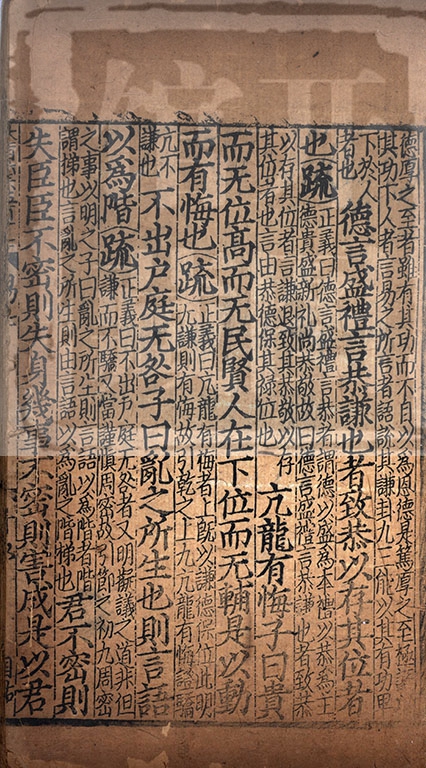 德厚之至者雖有其功而不自以為恩德是篤厚之至極語
其功下人者言易之所言者語說其謙卦九三能以其有功卑
下於人
者也
德言盛禮言恭謙也者致恭以存其位者
也疏正義曰德言盛禮言恭者謂德以盛為本禮以恭為主
德貴盛新禮尚恭敬故曰德言盛禮言恭謙也者致恭
以存其位者言謙退致其恭敬以存
其位者也言由恭德保其祿位也
亢龍有悔子曰貴
而无位髙而无民賢人在下位而无輔是以動
而有悔也疏正義曰亢龍有悔者上既以謙德保位此明
无謙則有悔故引乾之上九亢龍有悔證驕
亢不
謙也
不出户庭无咎子曰亂之所生也則言語
以為階疏正義曰不出户庭无咎者又明擬議之道非但
謙而不驕又當謹慎周密故引節之初九周密
之事以明之子曰亂之所生則言語以為階者階
謂梯也言亂之所生則由言語以為亂之階梯也
君不密則
失臣臣不密則失身幾事不密則害成是以君